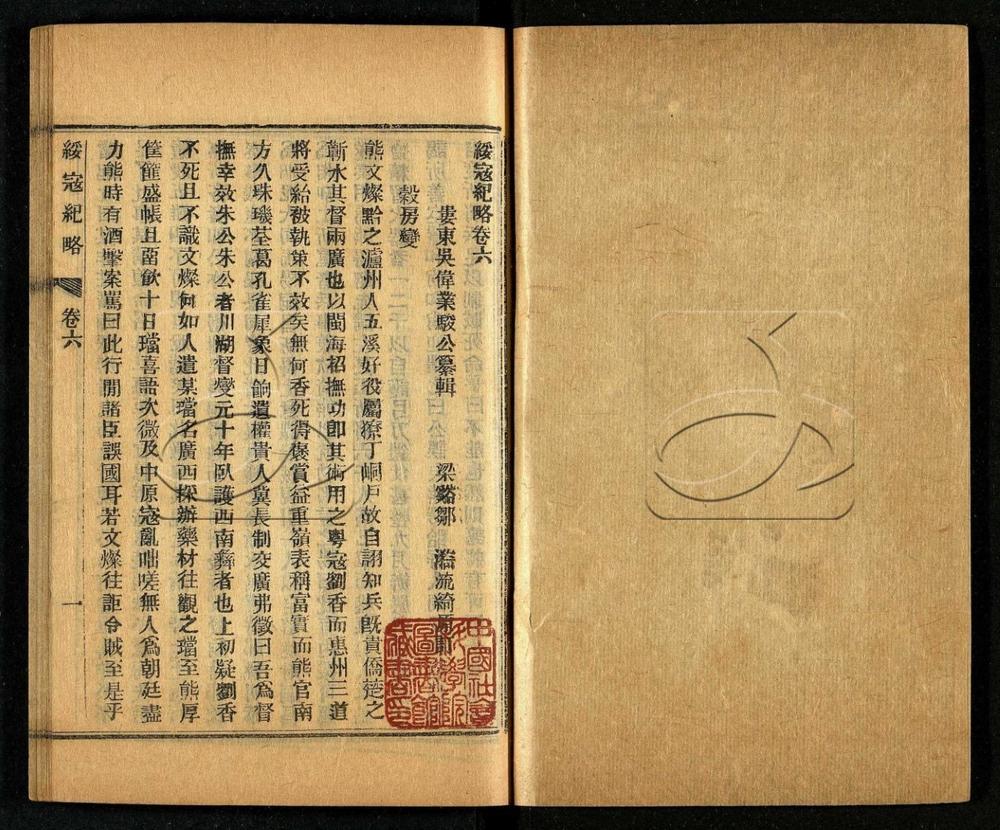 綏寇紀略卷六
婁東吳偉業駿公纂輯　梁谿鄒　漪流綺原訂
穀房變
熊文燦黔之瀘州人五溪好役屬獠丁峒戶故自詡知兵既貴僑楚之
蘄水其督兩廣也以閩海招撫功卽其術用之粵寇劉香而惠州三道
將受紿被執策不效矣無何香死得褒賞益重嶺表稱富實而熊官南
方久珠璣荃葛孔雀犀象日餉遺權貴人冀長制交廣弗徵曰吾爲督
撫幸效朱公朱公者川湖督燮元十年臥護西南彝者也上初疑劉香
不死且不識文燦何如人遣某璫名廣西採辦藥材往觀之璫至熊厚
筐篚盛帳且留飮十日璫喜語次微及中原寇亂咄嗟無人爲朝廷盡
力熊時有酒擊案罵曰此行閒諸臣誤國耳若文燦往詎令賊至是乎
綏寇紀略　卷六　一
中國社會科學院圖書館藏書印